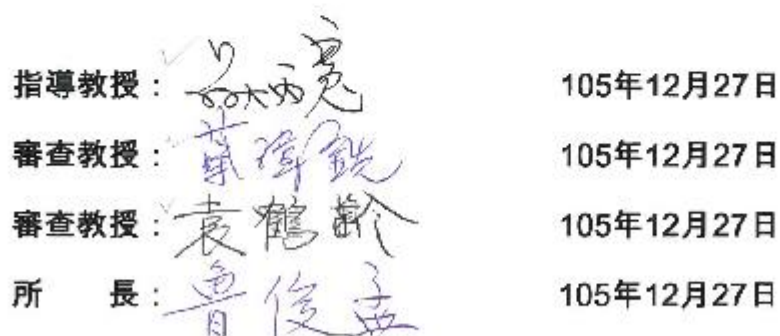 指導教授： 105年12月27日
審查教授：蔡偉銑 105年12月27日
審查教授：袁鶴齡 105年12月27日
所 長：魯俊孟 105年12月27日